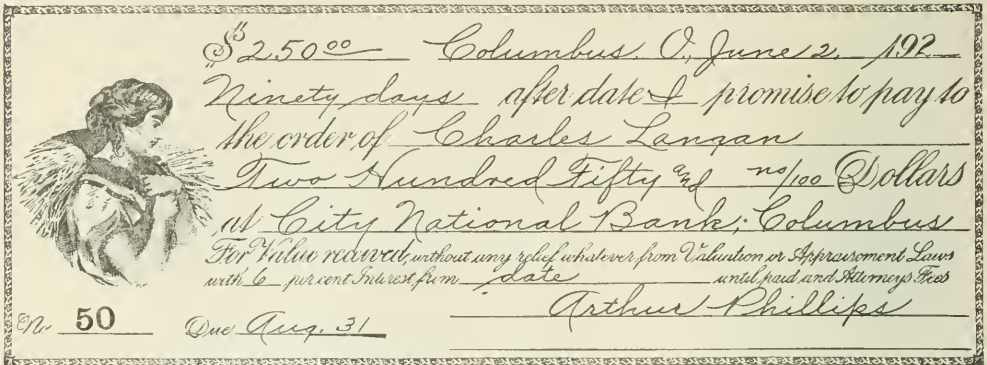 $250 00 Columbus, O., June 2, 192
Ninety days after date I promise to pay to
the order of Charles Langan
Two Hundred Fifty and no/100 Dollars
at City National Bank, Columbus
For Value received, without any relief whatever from Valuation or Appraisment Laws
with 6 per cent Interest from date until paid and Attorneys Fees
Arthur Phillips
No. 50 Due Aug. 31